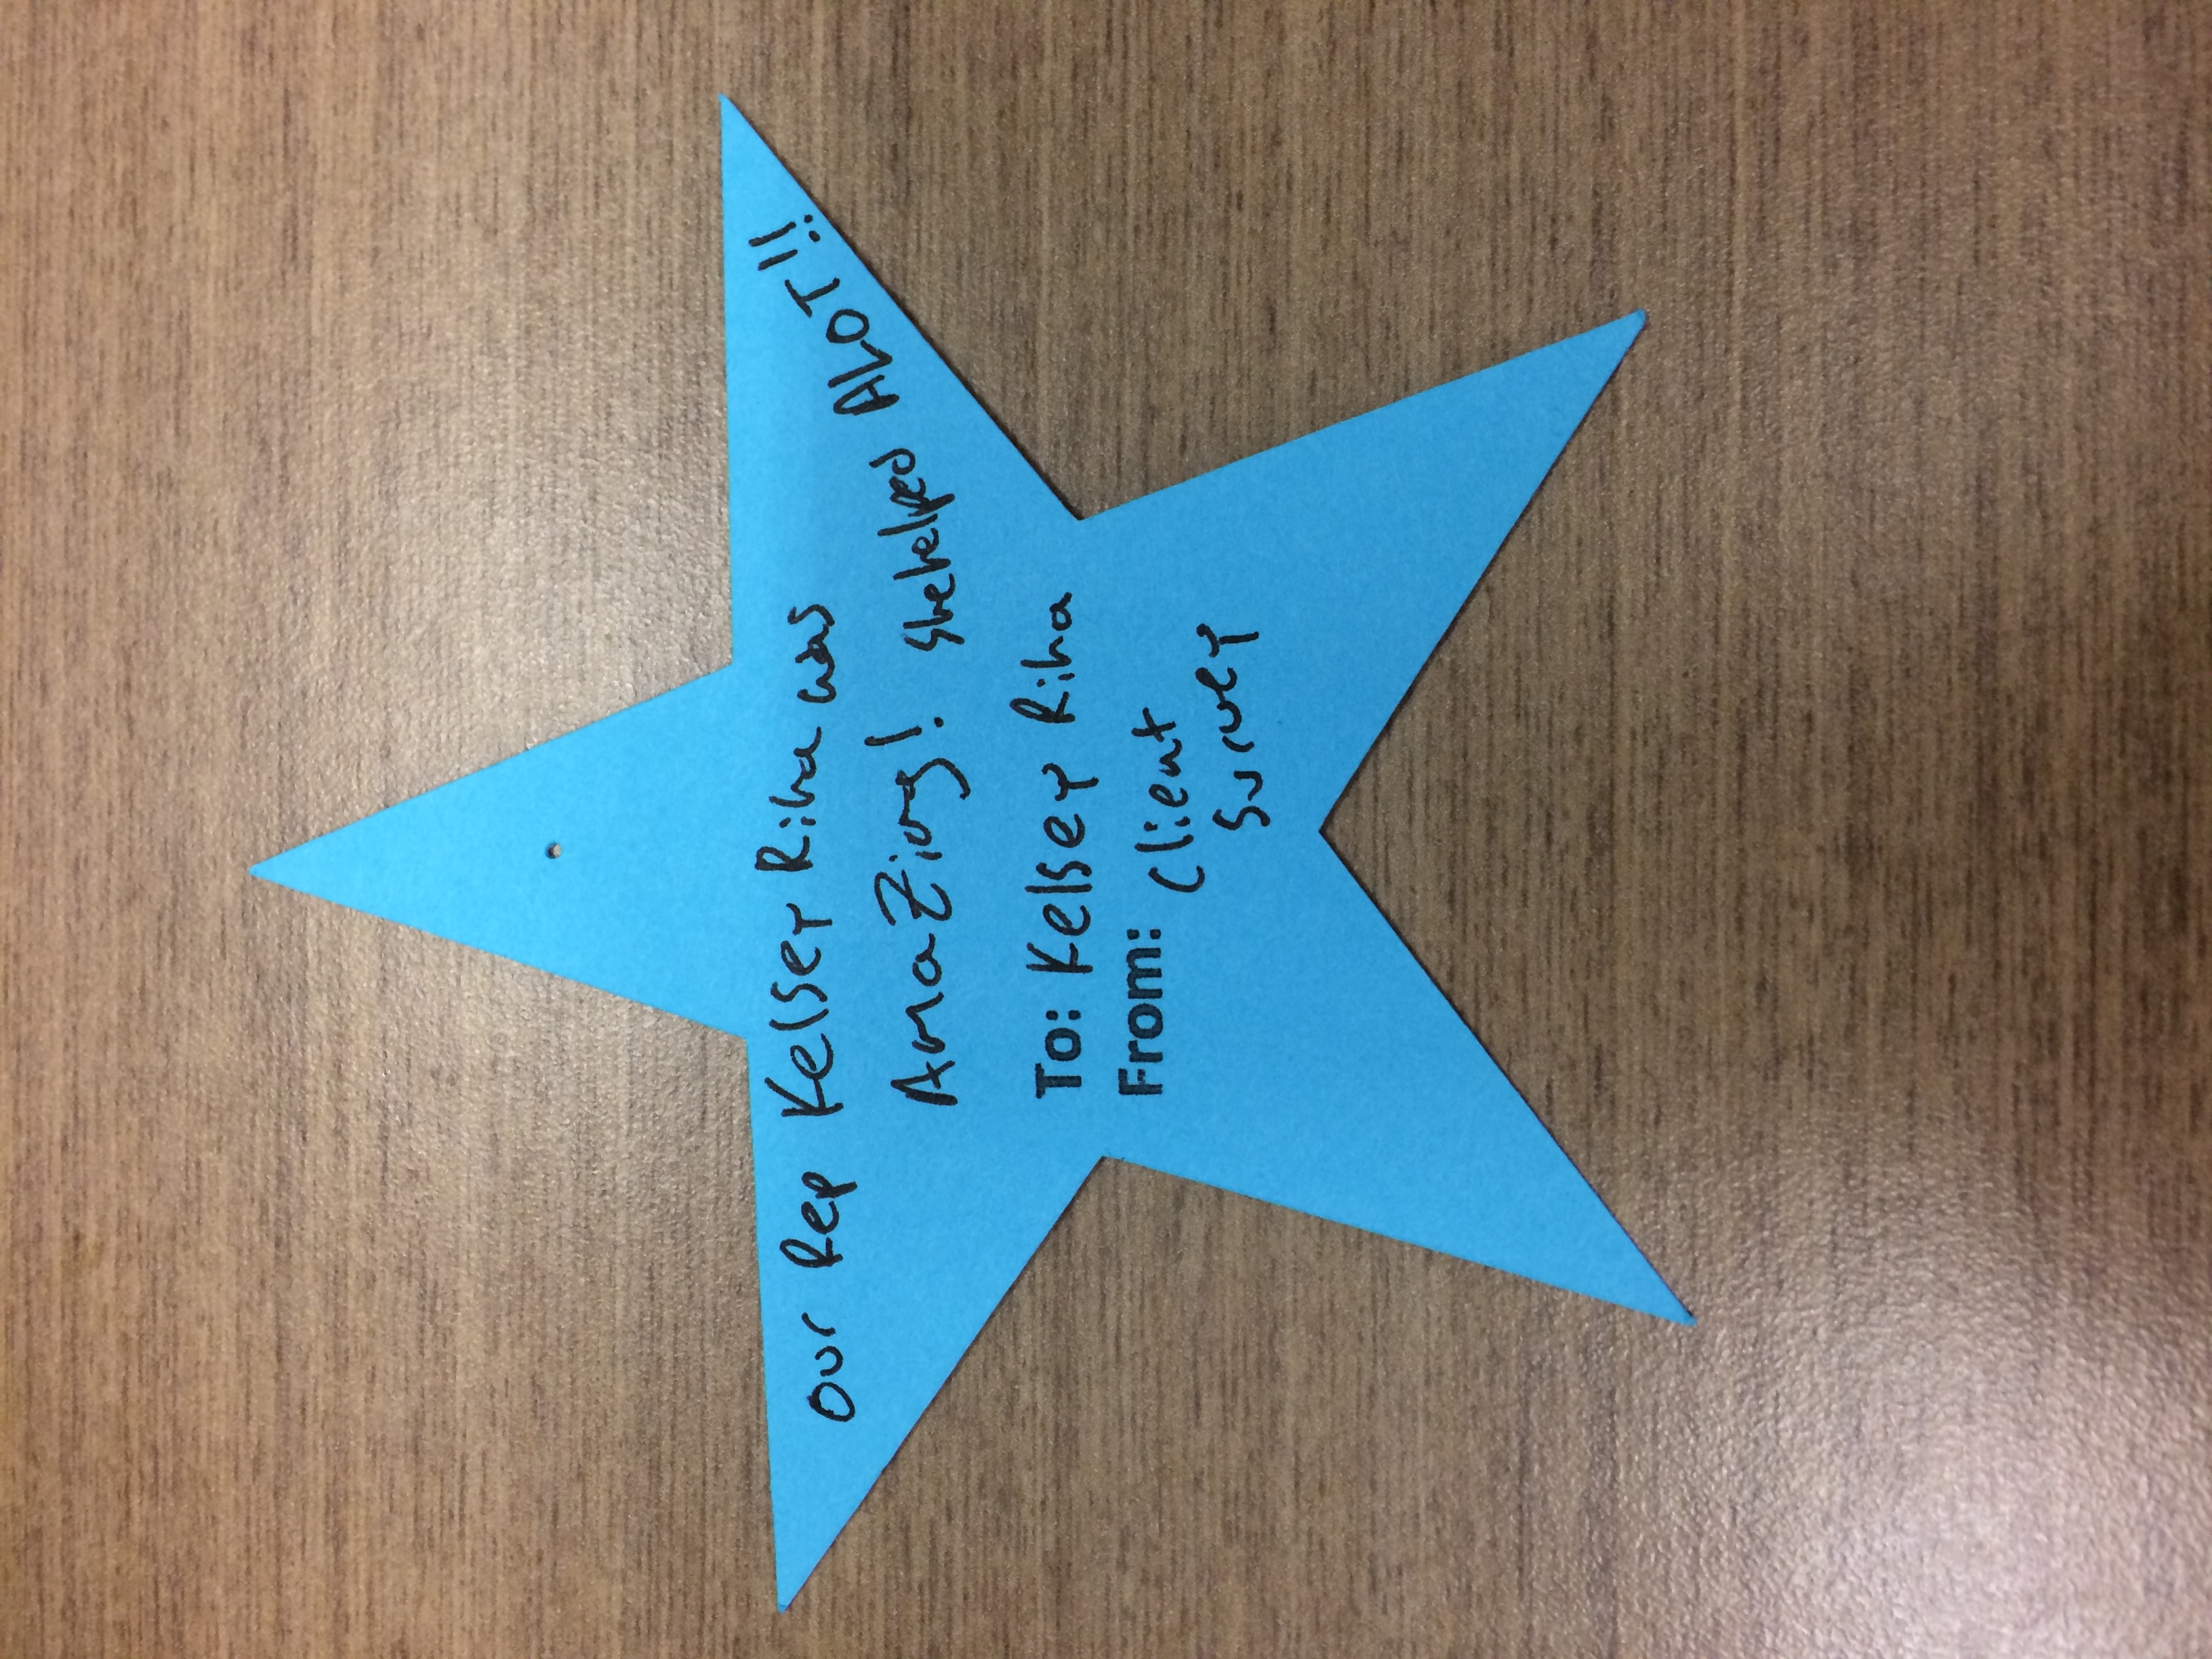 Our Rep Kelsey Riha was
AmaZing! She helped ALOT!!
To: Kelsey Riha
From: Client
Survey